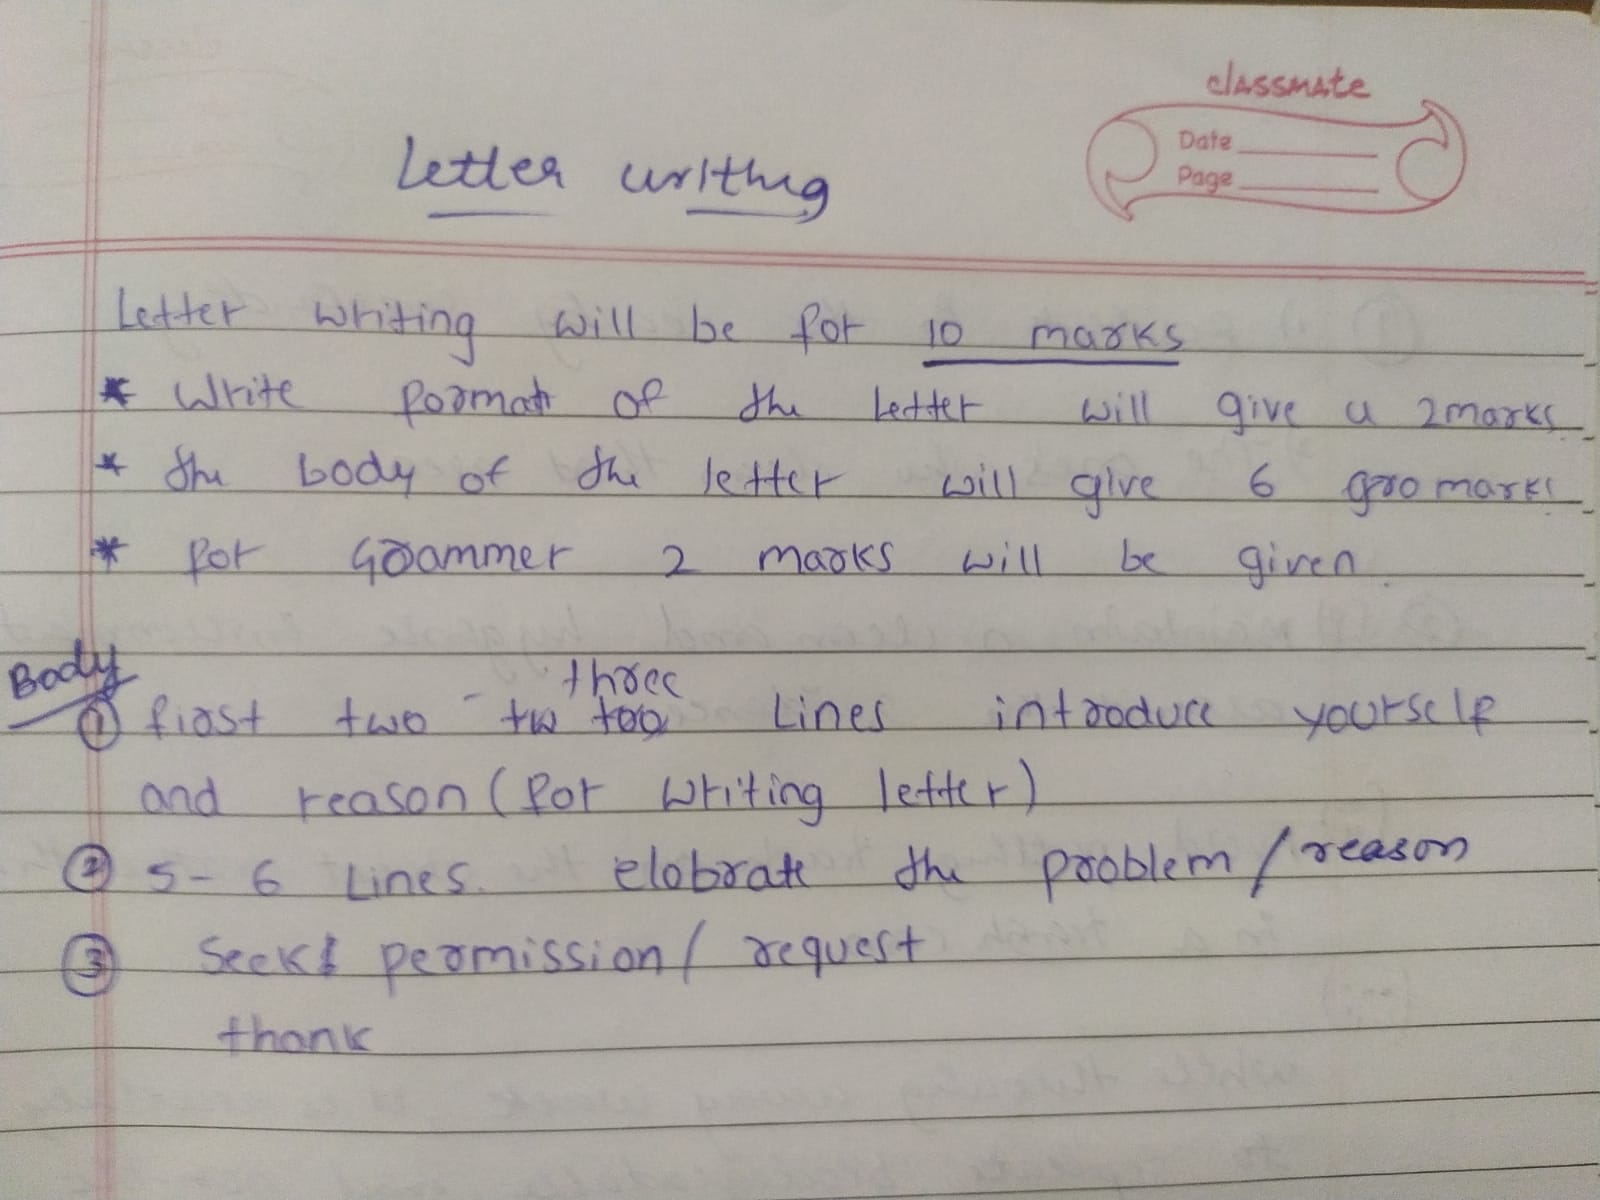 classmate
Date
Page
Letter writing
Letter writing will be for 10 marks
* Write format of the letter will give u 2marks
* The body of the letter will give 6 marks
* for Grammer 2 marks will be given.
Body
three
① first two - Lines introduce yourself
and reason (for writing letter)
② 5-6 Lines. elobrate the problem/reason
③ Seek permission/ request
thank